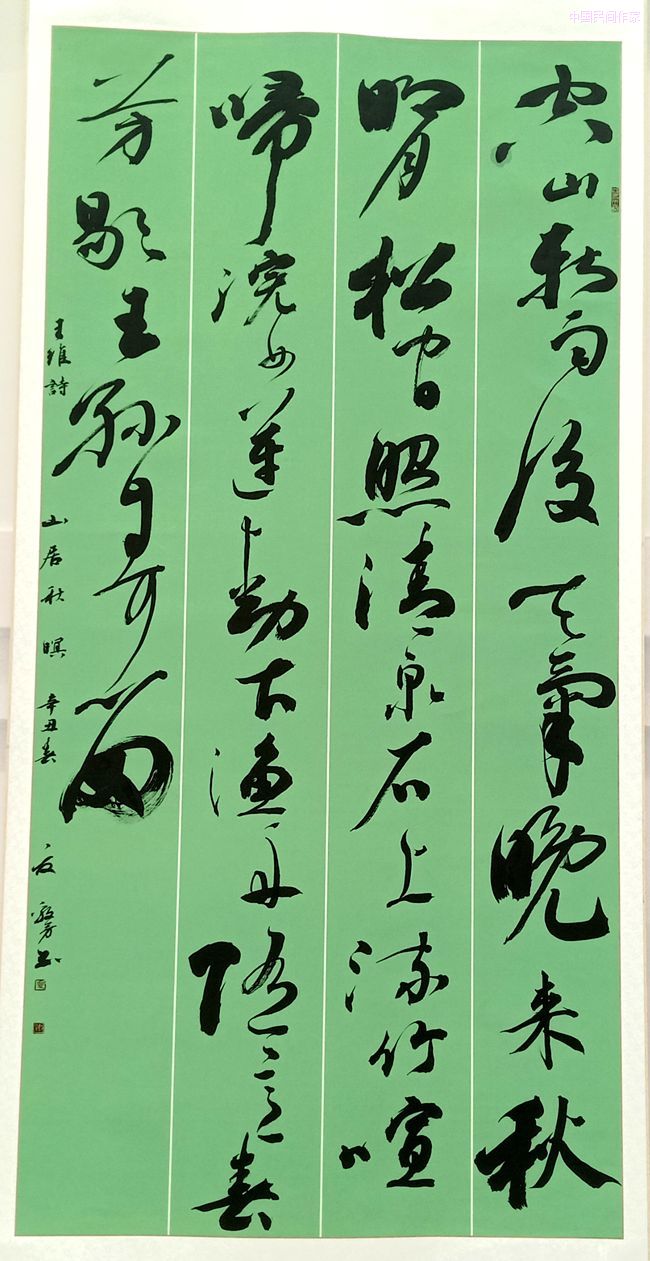 中国民间作家
空山新雨後天氣晚来秋
明月松間照清泉石上流竹喧
歸浣女蓮動下漁舟随意春
芳歇王孫自可留
王維詩 山居秋暝 辛丑春